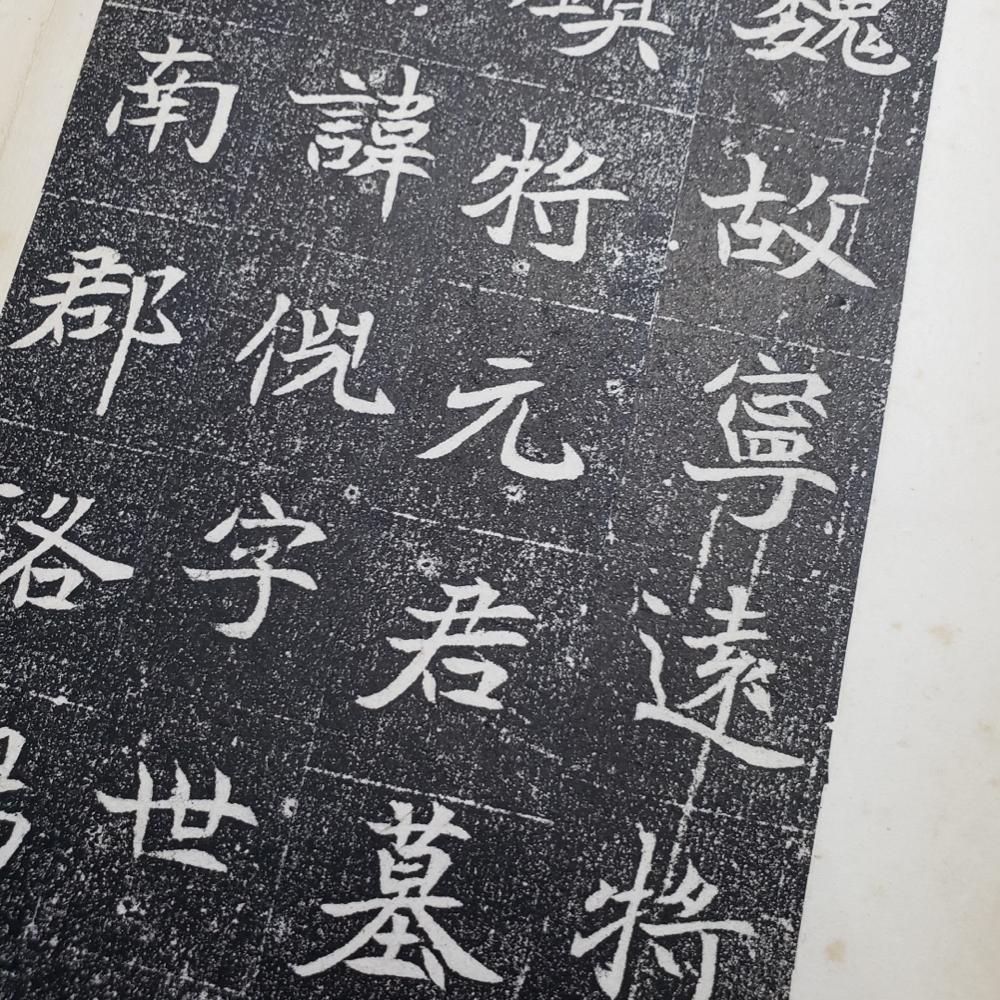 魏故寧遠將
鎮將元君墓
諱倪字世
南郡洛陽